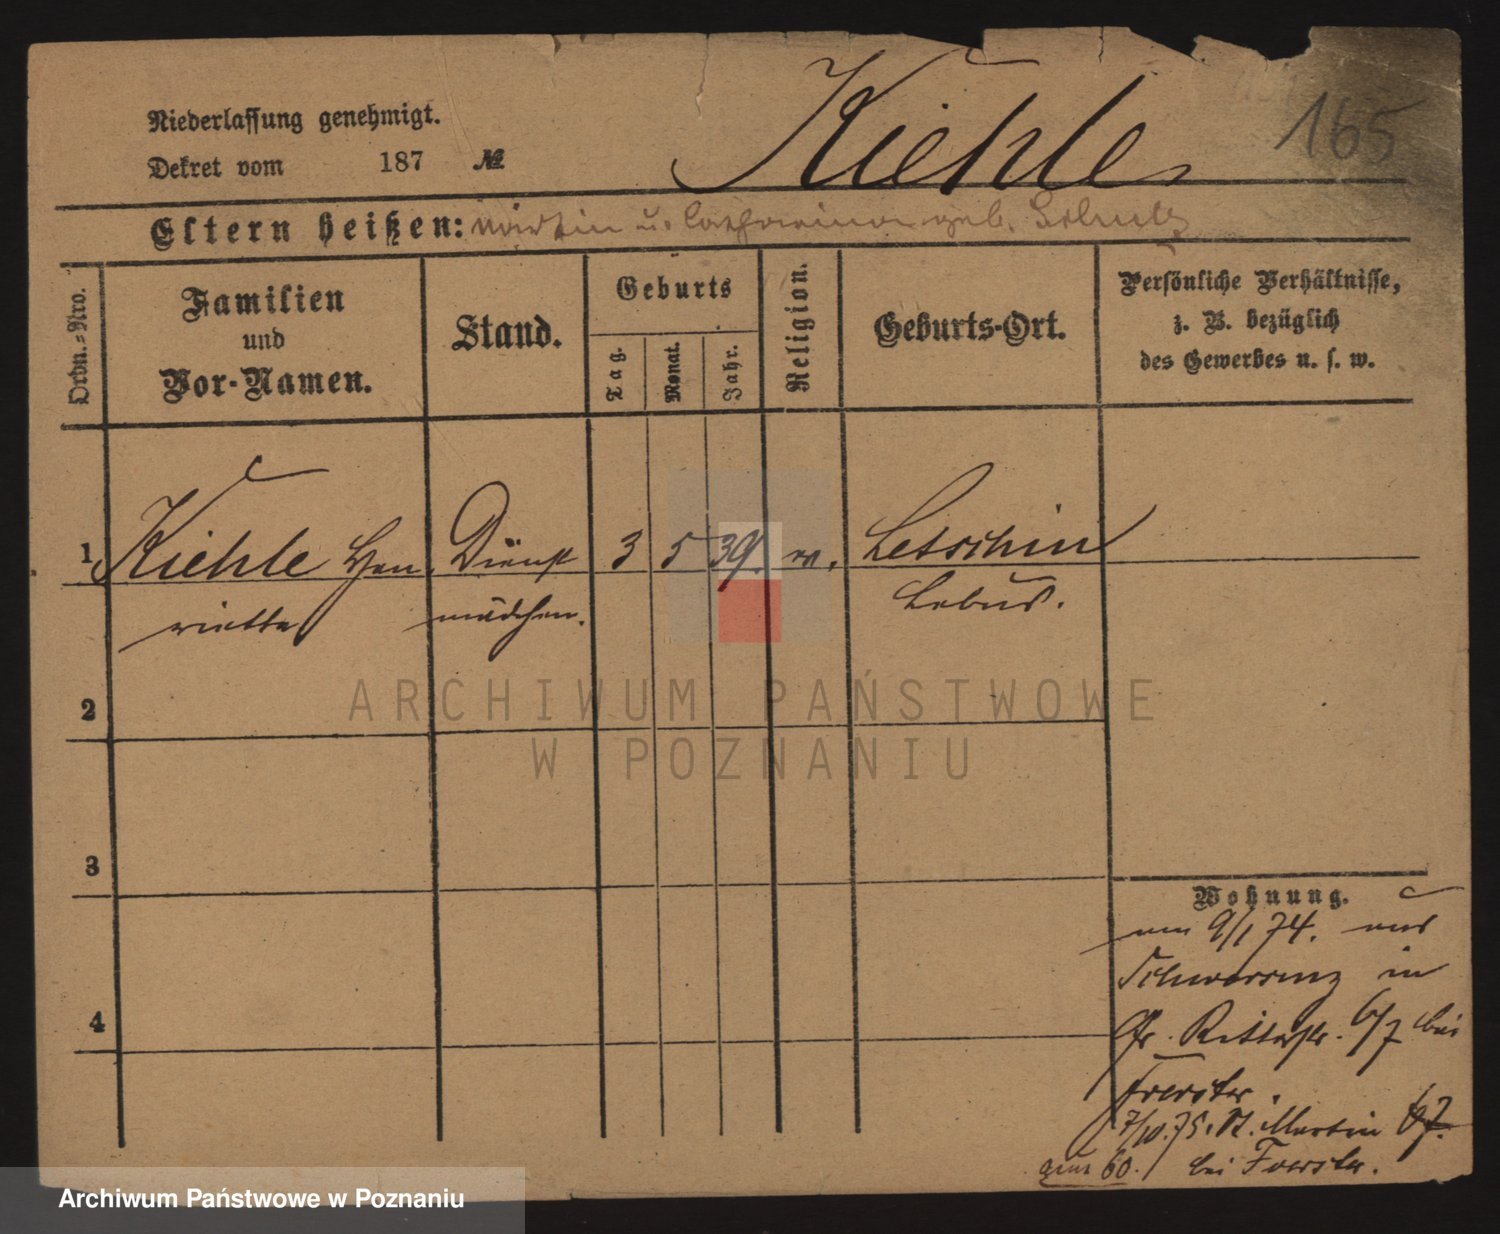 Kiehle
165
Niederlassung genehmigt.
Dekret vom 187 №
Eltern heißen: Martin u. Catharina geb. Schulz
Ordn.-Nro.
Familien
und
Vor-Namen.
Stand.
Geburts
Tag.
Monat.
Jahr.
Religion.
Geburts-Ort.
Persönliche Verhältnisse,
z. B. bezüglich
des Gewerbes u. s. w.
1 Kiehle Hen Dienst 3 5 39. Letschin
riette mädchen. Lebus.
2
3
4
Wohnung.
am 9/1 74. aus
Schwersenz in
Gr. Ritterstr. 6/7 bei
Foerster.
7/10. 75. St. Martin 67.
60. bei Foerster.
ARCHIWUM PAŃSTWOWE
W POZNANIU
Archiwum Państwowe w Poznaniu